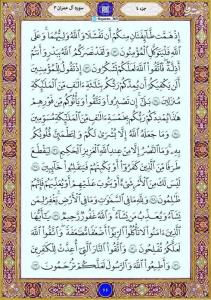 جزء ٤
سورة آل عمران ٣
إِذْ هَمَّت طَّائِفَتَانِ مِنكُمْ أَن تَفْشَلَا وَاللَّهُ وَلِيُّهُمَا وَعَلَى
اللَّهِ فَلْيَتَوَكَّلِ الْمُؤْمِنُونَ وَلَقَدْ نَصَرَكُمُ اللَّهُ بِبَدْرٍ وَأَنتُمْ
أَذِلَّةٌ فَاتَّقُوا اللَّهَ لَعَلَّكُمْ تَشْكُرُونَ إِذْ تَقُولُ لِلْمُؤْمِنِينَ
أَلَن يَكْفِيَكُمْ أَن يُمِدَّكُمْ رَبُّكُم بِثَلَاثَةِ آلَافٍ مِّنَ الْمَلَائِكَةِ
مُنزَلِينَ بَلَىٰ إِن تَصْبِرُوا وَتَتَّقُوا وَيَأْتُوكُم مِّن فَوْرِهِمْ
هَٰذَا يُمْدِدْكُمْ رَبُّكُم بِخَمْسَةِ آلَافٍ مِّنَ الْمَلَائِكَةِ مُسَوِّمِينَ
وَمَا جَعَلَهُ اللَّهُ إِلَّا بُشْرَىٰ لَكُمْ وَلِتَطْمَئِنَّ قُلُوبُكُم
بِهِ وَمَا النَّصْرُ إِلَّا مِنْ عِندِ اللَّهِ الْعَزِيزِ الْحَكِيمِ لِيَقْطَعَ
طَرَفًا مِّنَ الَّذِينَ كَفَرُوا أَوْ يَكْبِتَهُمْ فَيَنقَلِبُوا خَائِبِينَ
لَيْسَ لَكَ مِنَ الْأَمْرِ شَيْءٌ أَوْ يَتُوبَ عَلَيْهِمْ أَوْ يُعَذِّبَهُمْ فَإِنَّهُمْ
ظَالِمُونَ وَلِلَّهِ مَا فِي السَّمَاوَاتِ وَمَا فِي الْأَرْضِ يَغْفِرُ لِمَن
يَشَاءُ وَيُعَذِّبُ مَن يَشَاءُ وَاللَّهُ غَفُورٌ رَّحِيمٌ يَا أَيُّهَا
الَّذِينَ آمَنُوا لَا تَأْكُلُوا الرِّبَا أَضْعَافًا مُّضَاعَفَةً وَاتَّقُوا اللَّهَ
لَعَلَّكُمْ تُفْلِحُونَ وَاتَّقُوا النَّارَ الَّتِي أُعِدَّتْ لِلْكَافِرِينَ
وَأَطِيعُوا اللَّهَ وَالرَّسُولَ لَعَلَّكُمْ تُرْحَمُونَ
٦٦